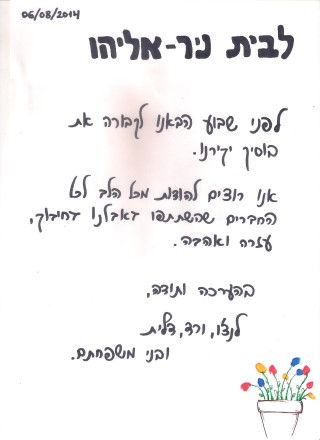 06/08/2014
לבית ניר-אליהו
לפני שבוע הבאנו לקבורה את
בוסיך יקירנו.
אנו רוצים להודות מכל הלב לכל
החברים שהשתתפו באבלנו בחיבוק,
עזרה ואהבה.
בהערכה ותודה,
ורד, דלית
ובני משפחתם.